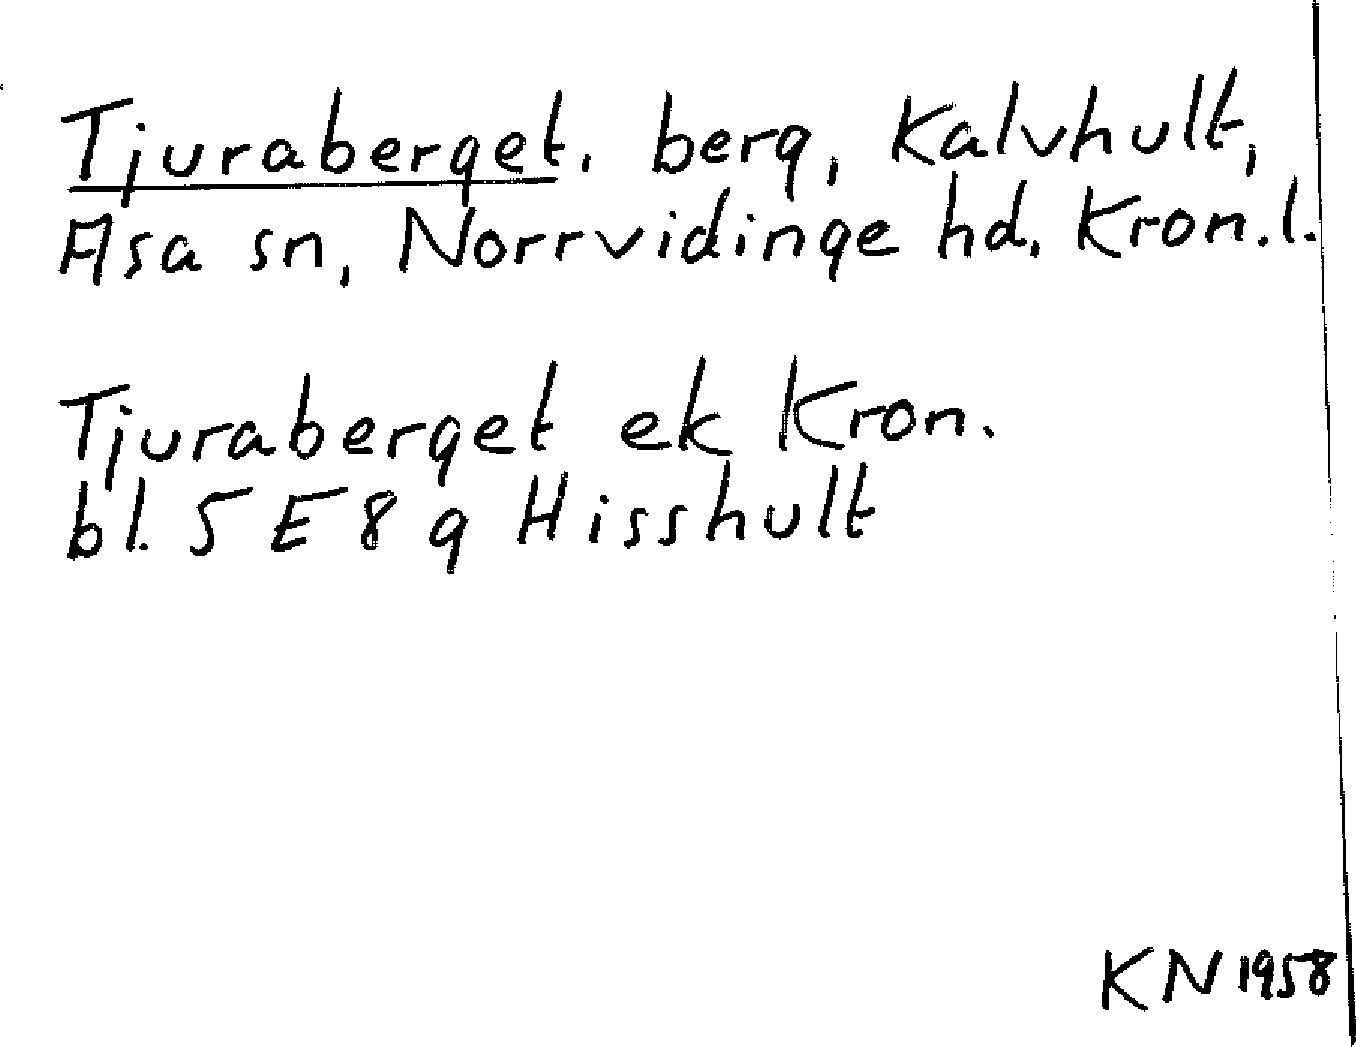 Tjuraberget. berg, Kalvhult,
Asa sn, Norrvidinge hd. Kron.l.
Tjuraberget ek Kron.
bl. 5 E 8 g Hisshult
KN 1958